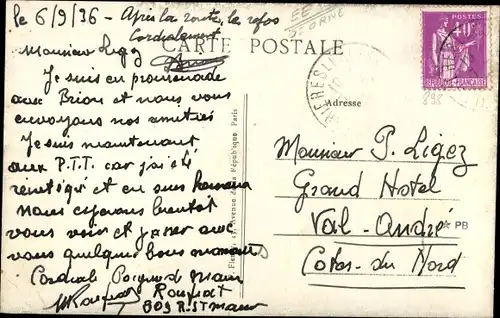 le 6/9/36 - Après la route, le repos
Cordialement
CARTE POSTALE
Monsieur Ligez
Je suis en promenade
avec Brion et nous vous
envoyons nos amitiés
Je suis maintenant
aux P.T.T. car j'ai été
et en suis
Nous espérons bientôt
vous voir et jaser avec
vous quelques bons moments
Cordiale Poignée de main
Rouffiat
609 R. St maur
Avenue de la République, Paris
Adresse
POSTES
40c
REPUBLIQUE FRANÇAISE
Monsieur P. Ligez
Grand Hotel
Val-André
Cotes-du Nord
PB